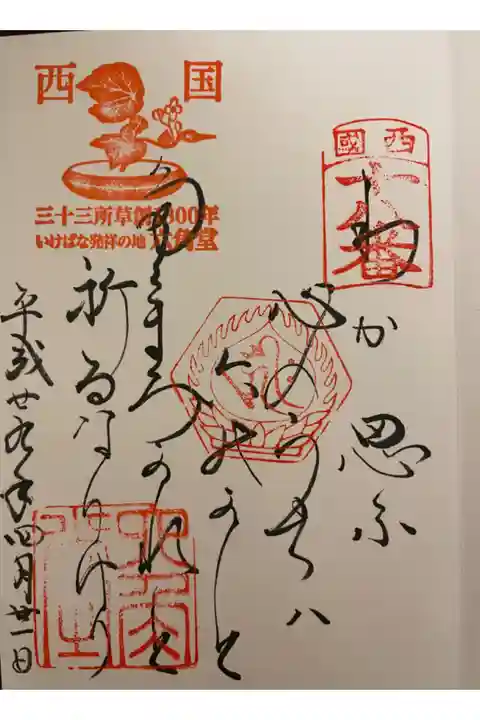 西国
三十三所草創1300年
いけばな発祥の地 六角堂
西國
十八番
わか思ふ
心のうちハ
六のかと
祈るなりけり
平成廿九年四月廿一日